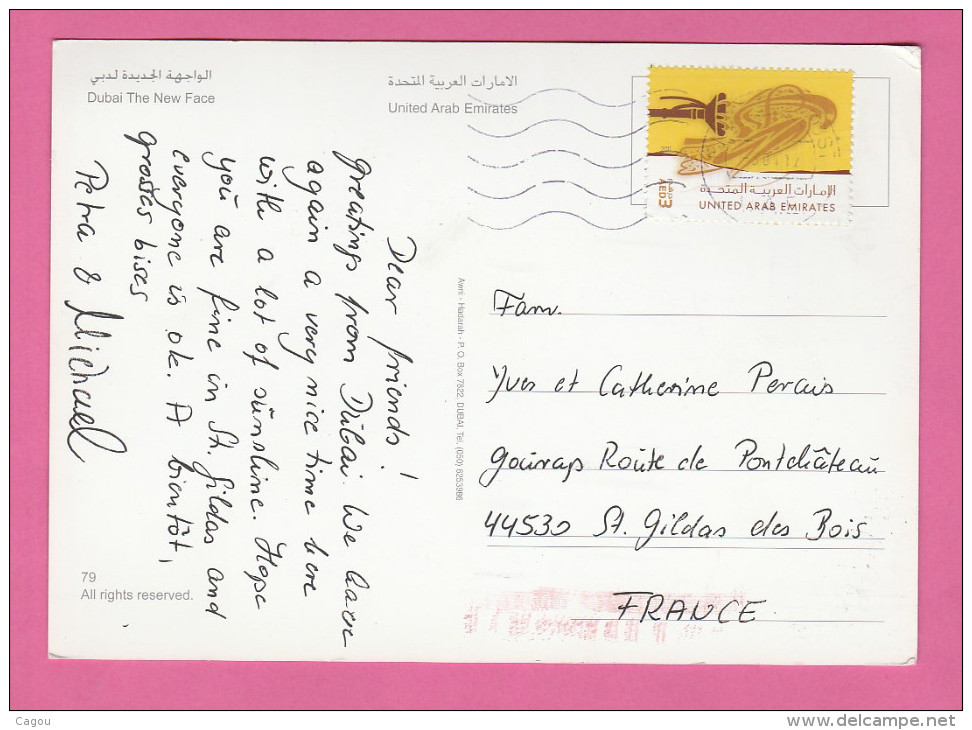 الواجهة الجديدة لدبي
Dubai The New Face
الامارات العربية المتحدة
United Arab Emirates
الإمارات العربية المتحدة
UNITED ARAB EMIRATES
AED 3
Dear friends!
Greatings from Dubai. We have
again a very nice time here
with a lot of sunshine. Hope
you are fine in St. Gildas and
everyone is ok. A bientôt,
grosses bises
Petra & Michael
Awni - Hadarah - P. O. Box 7822, DUBAI, Tel. (050) 8253986
Fam.
Yves et Catherine
Route de Pontchâteau
44530 St. Gildas des Bois
FRANCE
79
All rights reserved.
Cagou
www.delcampe.net